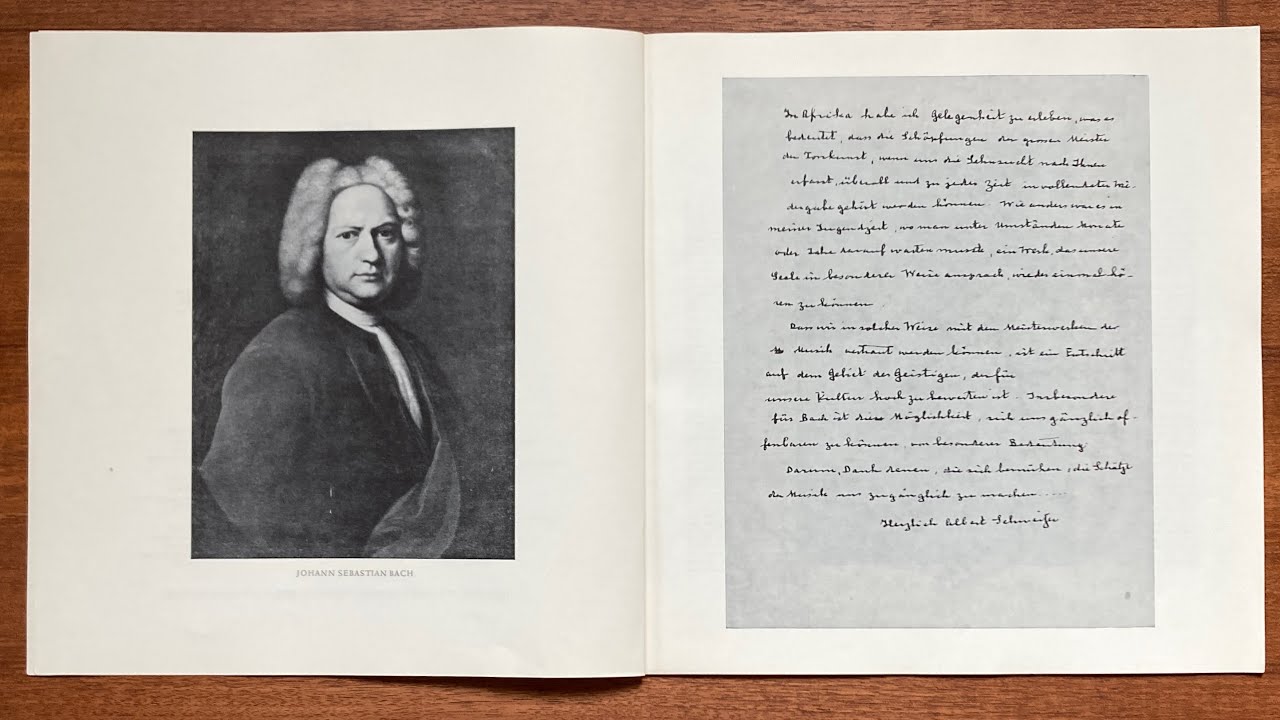 JOHANN SEBASTIAN BACH
In Afrika habe ich Gelegenheit zu erleben, was es
bedeutet, dass die Schöpfungen der grossen Meister
der Tonkunst, wenn uns die Sehnsucht nach Ihnen
erfasst, überall und zu jeder Zeit in vollendeter Wie-
dergabe gehört werden können. Wie anders war es in
meiner Jugendzeit, wo man unter Umständen Monate
oder Jahre darauf warten musste, ein Werk, das unsere
Seele in besonderer Weise ansprach, wieder einmal hö-
ren zu können.
Dass wir in solcher Weise mit den Meisterwerken der
Musik vertraut werden können, ist ein Fortschritt
auf dem Gebiet des Geistigen, der für
unsere Kultur hoch zu bewerten ist. Insbesondere
für Bach ist diese Möglichkeit, sich uns gänzlich of-
fenbaren zu können, von besonderer Bedeutung
Darum, Dank denen, die sich bemühen, die Schätze
der Musik uns zugänglich zu machen.....
Herzlich Albert Schweitzer